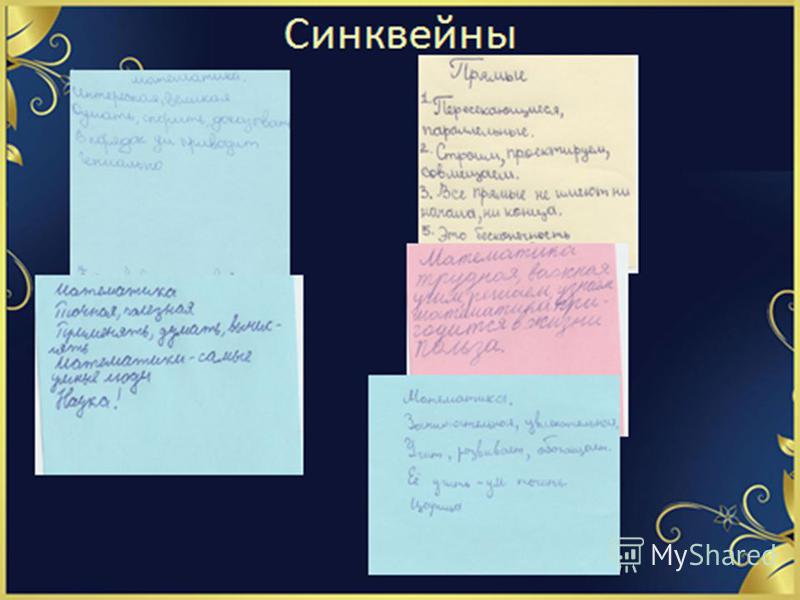 Синквейны
математика.
Интересная, великая
Думать, спорить, доказовать
В порядок ум приводит
Гениально
Прямые
1. Пересекающиеся,
параллельные.
2. Строим, проектируем,
совмещаем.
3. Все прямые не имеют ни
начала, ни конца.
5. Это бесконечность
Математика
Точная, полезная
Применять, думать, вычис-
лять
Математики - самые
умные люди
Наука!
Математика
трудная, важная
учим решаем узнаём
математика при-
годится в жизни
польза.
Математика.
Занимательная, увлекательная.
Учит, развивает, обогащает.
Её учить - ум точить
Царица
MyShared